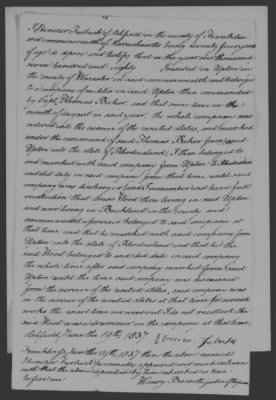 I Ebenezer Fisbuck of Ashfield in the county of Franklin
and commonwealth of Massachusetts being seventy four years
of age do depose and testify that in the year one thousand
seven hundred and eighty I resided in Upton in
the county of Worcester in said commonwealth and belonged
to a company of militia in said Upton then commanded
by Capt Thomas Baker, and that some time in the
month of August in said year, the whole company was
ordered into the service of the united states, and marched
under the command of said Thomas Baker from said
Upton into the state of Rhodeisland; I then belonged to
and marched with said company from Upton to Rhodeisland
and did duty in said company from that time until said
company was discharged and have full
recollection that Jonas Wood then living in said Upton
and now living in Buckland in the county and
commonwealth aforesaid belonged to said company at
that time and that he marched with said company from
Upton into the state of Rhodeisland and that he the
said Wood belonged to and did duty in said company
the whole time after said company marched from said
Upton until the time said company was dismissed
from the service of the united states, said company was
in the service of the united states at that time for several
weeks the exact time we were out I do not recollect the
said Wood was a drummer in the company at that time.
Ashfield June the 19th 1837 Ebenezer
Franklin ss June the 19th 1837 then the above named
Ebenezer personally appeared and made oath
that the above deposition by him subscribed is true
before me Henry Bassett justice of the peace